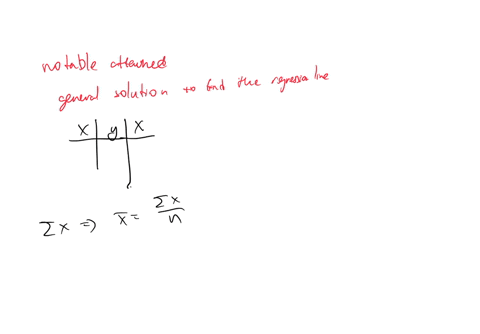 notable
general solution to find the regression line
X y X
Σx ⇒ x̄ = Σx / n